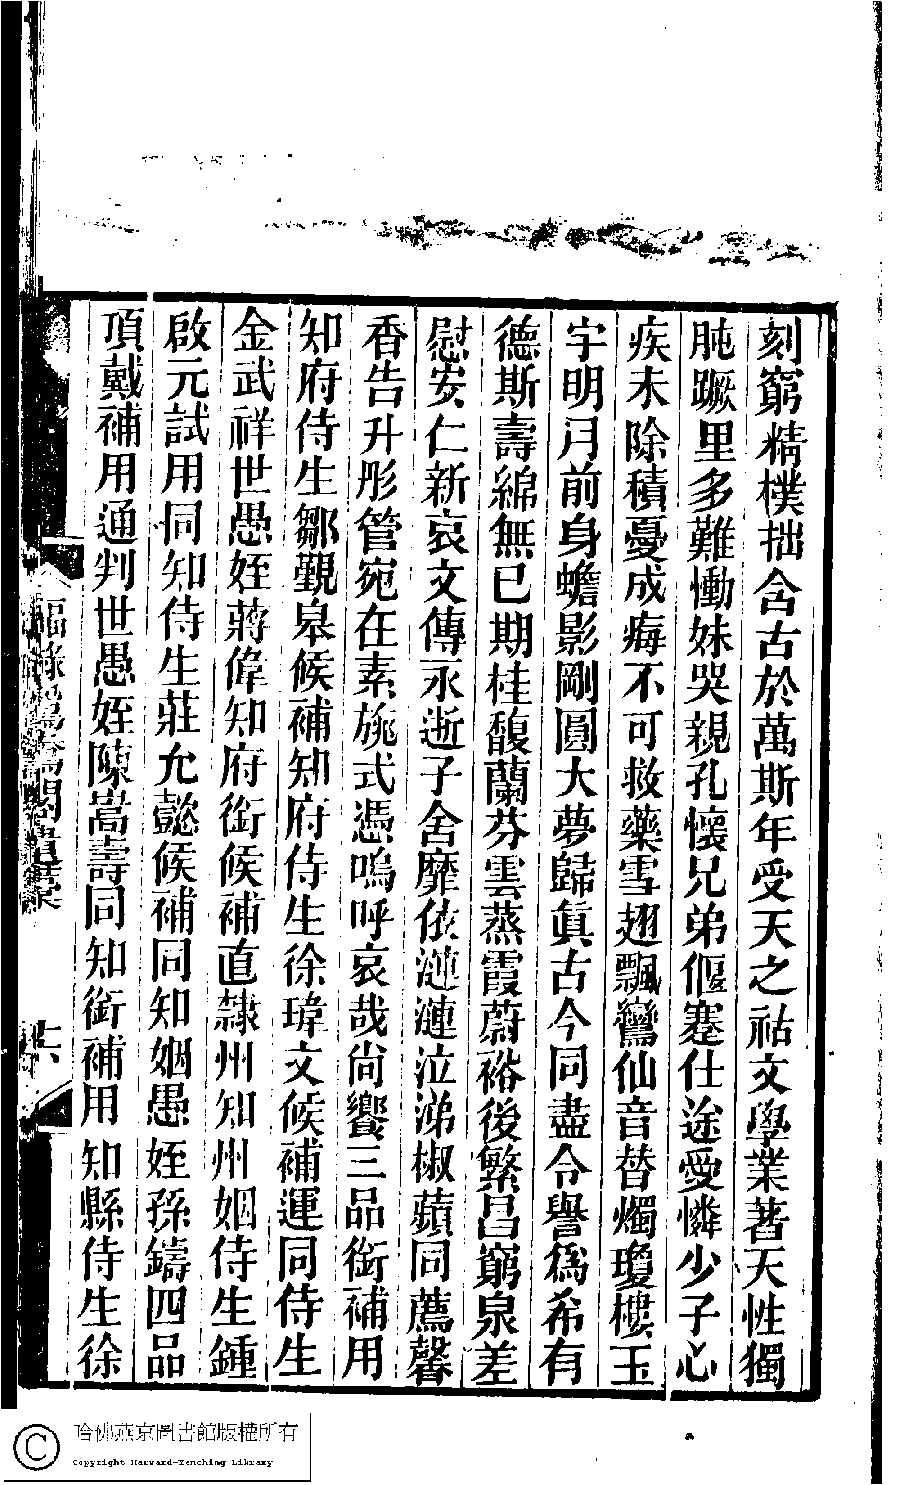 刻窮精樸拙含古於萬斯年受天之祜文學業著天性獨
肫蹶里多難慟妹哭親孔懷兄弟偃蹇仕途愛憐少子心
疾未除積憂成痗不可救藥雪翅飄鸞仙音替燭瓊樓玉
宇明月前身蟾影剛圓大夢歸眞古今同盡令譽爲希有
德斯壽綿無已期桂馥蘭芬雲蒸霞蔚裕後繁昌窮泉差
慰安仁新哀文傳永逝子舍靡依漣漣泣涕椒蘋同薦馨
香告升彤管宛在素旐式憑嗚呼哀哉尚饗三品銜補用
知府侍生鄒覲皋候補知府侍生徐瑋文候補運同侍生
金武祥世愚姪蔣偉知府銜候補直隸州知州姻侍生鍾
啟元試用同知侍生莊允懿候補同知姻愚姪孫鑄四品
頂戴補用通判世愚姪陳嵩壽同知銜補用知縣侍生徐
哈佛燕京圖書館版權所有
Copyright Harvard-Yenching Library